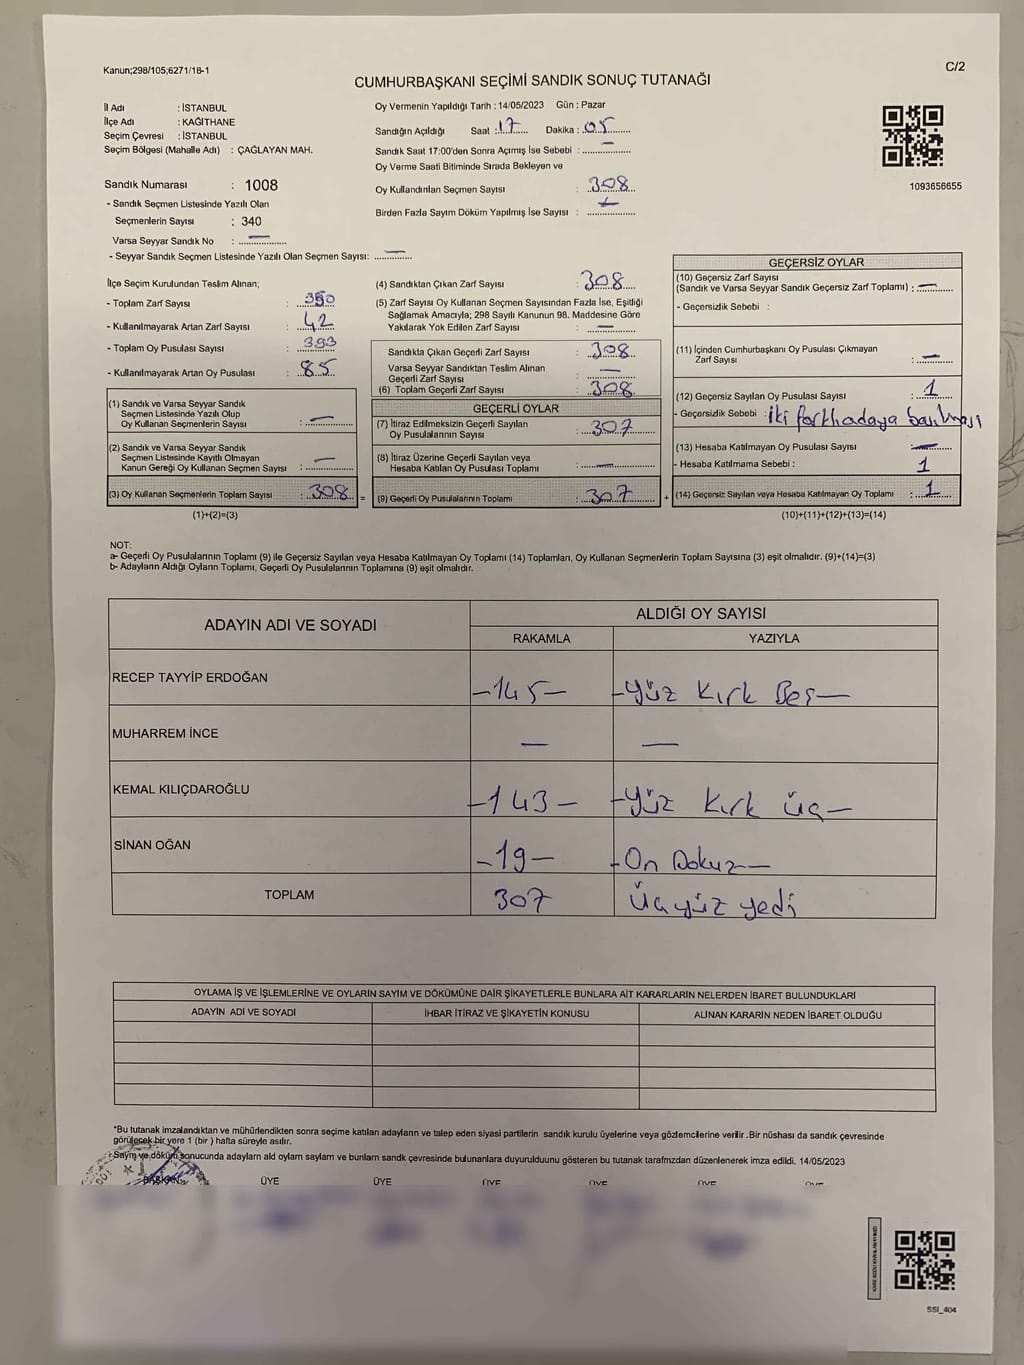 Kanun;298/105;6271/18-1
C/2
CUMHURBAŞKANI SEÇİMİ SANDIK SONUÇ TUTANAĞI
İl Adı : İSTANBUL
İlçe Adı : KAĞITHANE
Seçim Çevresi : İSTANBUL
Seçim Bölgesi (Mahalle Adı) : ÇAĞLAYAN MAH.
Sandık Numarası : 1008
- Sandık Seçmen Listesinde Yazılı Olan
Seçmenlerin Sayısı : 340
Varsa Seyyar Sandık No : —
- Seyyar Sandık Seçmen Listesinde Yazılı Olan Seçmen Sayısı: —
Oy Vermenin Yapıldığı Tarih : 14/05/2023 Gün : Pazar
Sandığın Açıldığı Saat : 17 Dakika : 05
Sandık Saat 17:00'den Sonra Açımış İse Sebebi : —
Oy Verme Saati Bitiminde Sırada Bekleyen ve
Oy Kullandırılan Seçmen Sayısı : 308
Birden Fazla Sayım Döküm Yapılmış İse Sayısı : —
1093656655
İlçe Seçim Kurulundan Teslim Alınan;
- Toplam Zarf Sayısı : 350
- Kullanılmayarak Artan Zarf Sayısı : 42
- Toplam Oy Pusulası Sayısı : 393
- Kullanılmayarak Artan Oy Pusulası : 85
(1) Sandık ve Varsa Seyyar Sandık
Seçmen Listesinde Yazılı Olup
Oy Kullanan Seçmenlerin Sayısı : —
(2) Sandık ve Varsa Seyyar Sandık
Seçmen Listesinde Kayıtlı Olmayan
Kanun Gereği Oy Kullanan Seçmen Sayısı : —
(3) Oy Kullanan Seçmenlerin Toplam Sayısı : 308 =
(1)+(2)=(3)
(4) Sandıktan Çıkan Zarf Sayısı : 308
(5) Zarf Sayısı Oy Kullanan Seçmen Sayısından Fazla İse, Eşitliği
Sağlamak Amacıyla; 298 Sayılı Kanunun 98. Maddesine Göre
Yakılarak Yok Edilen Zarf Sayısı : —
Sandıkta Çıkan Geçerli Zarf Sayısı : 308
Varsa Seyyar Sandıktan Teslim Alınan
Geçerli Zarf Sayısı : —
(6) Toplam Geçerli Zarf Sayısı : 308
GEÇERLİ OYLAR
(7) İtiraz Edilmeksizin Geçerli Sayılan
Oy Pusulalarının Sayısı : 307
(8) İtiraz Üzerine Geçerli Sayılan veya
Hesaba Katılan Oy Pusulası Toplamı : —
(9) Geçerli Oy Pusulalarının Toplamı : 307 +
GEÇERSİZ OYLAR
(10) Geçersiz Zarf Sayısı
(Sandık ve Varsa Seyyar Sandık Geçersiz Zarf Toplamı) : —
- Geçersizlik Sebebi :
(11) İçinden Cumhurbaşkanı Oy Pusulası Çıkmayan
Zarf Sayısı : —
(12) Geçersiz Sayılan Oy Pusulası Sayısı : 1
- Geçersizlik Sebebi : iki farklı adaya basılması
(13) Hesaba Katılmayan Oy Pusulası Sayısı : —
- Hesaba Katılmama Sebebi : 1
(14) Geçersiz Sayılan veya Hesaba Katılmayan Oy Toplamı : 1
(10)+(11)+(12)+(13)=(14)
NOT:
a- Geçerli Oy Pusulalarının Toplamı (9) ile Geçersiz Sayılan veya Hesaba Katılmayan Oy Toplamı (14) Toplamları, Oy Kullanan Seçmenlerin Toplam Sayısına (3) eşit olmalıdır. (9)+(14)=(3)
b- Adayların Aldığı Oyların Toplamı, Geçerli Oy Pusulalarının Toplamına (9) eşit olmalıdır.
ADAYIN ADI VE SOYADI
ALDIĞI OY SAYISI
RAKAMLA YAZIYLA
RECEP TAYYİP ERDOĞAN –145– –Yüz Kırk Beş–
MUHARREM İNCE — —
KEMAL KILIÇDAROĞLU –143– –Yüz Kırk üç–
SİNAN OĞAN –19– –On Dokuz–
TOPLAM 307 Üçyüz yedi
OYLAMA İŞ VE İŞLEMLERİNE VE OYLARIN SAYIM VE DÖKÜMÜNE DAİR ŞİKAYETLERLE BUNLARA AİT KARARLARIN NELERDEN İBARET BULUNDUKLARI
ADAYIN ADI VE SOYADI İHBAR İTİRAZ VE ŞİKAYETİN KONUSU ALINAN KARARIN NEDEN İBARET OLDUĞU
*Bu tutanak imzalandıktan ve mühürlendikten sonra seçime katılan adayların ve talep eden siyasi partilerin sandık kurulu üyelerine veya gözlemcilerine verilir .Bir nüshası da sandık çevresinde
görülecek bir yere 1 (bir ) hafta süreyle asılır.
Sayım ve döküm sonucunda adayların ald oyların sayların ve bunların sandk çevresinde bulunanlara duyurulduunu gösteren bu tutanak tarafmzdan düzenlenerek imza edildi. 14/05/2023
BAŞKAN ÜYE ÜYE ÜYE ÜYE ÜYE ÜYE
SSI_404